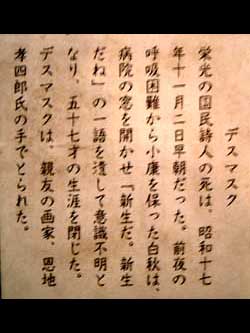 デスマスク
栄光の国民詩人の死は、昭和十七
年十一月二日早朝だった。前夜の
呼吸困難から小康を保った白秋は、
病院の窓を開かせ「新生だ。新生
だね」の一語を遺して意識不明と
なり、五十七才の生涯を閉じた。
デスマスクは、親友の画家、恩地
孝四郎氏の手でとられた。